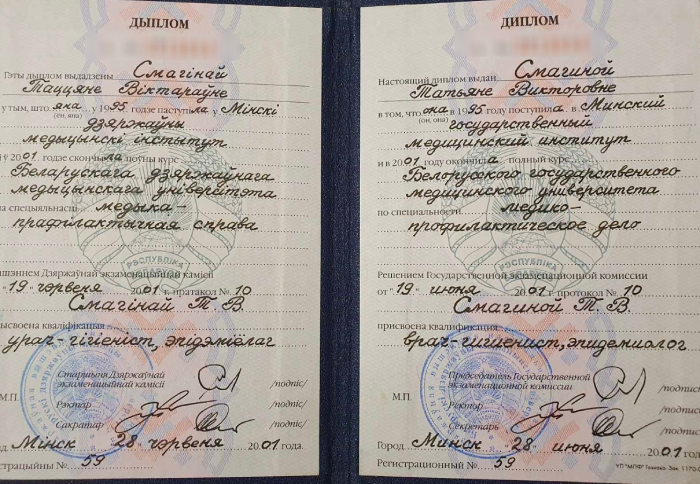 ДЫПЛОМ
Гэты дыплом выдадзены Смагінай
Таццяне Віктараўне
у тым, што яна у 1995 годзе паступіла у Мінскі
(ён, яна)
дзяржаўны
медыцынскі інстытут
і ў 2001 годзе скончыла поўны курс
Беларускага дзяржаўнага
медыцынскага універсітэта
па спецыяльнасці медыка-
прафілактычная справа
РЭСПУБЛІКА
Рашэннем Дзяржаўнай экзаменацыйнай камісіі
"19" чэрвеня 2001 г. пратакол № 10
Смагінай Т. В.
прысвоена кваліфікацыя
урач-гігіеніст, эпідэміёлаг
Старшыня Дзяржаўнай
экзаменацыйнай камісіі /подпіс/
М.П.
Рэктар /подпіс/
Сакратар /подпіс/
Горад Мінск 28 чэрвеня 2001 года.
Рэгістрацыйны № 59
ДИПЛОМ
Настоящий диплом выдан Смагиной
Татьяне Викторовне
в том, что она в 1995 году поступила в Минский
(он, она)
государственный
медицинский институт
и в 2001 году окончила полный курс
Белорусского государственного
медицинского университета
по специальности медико-
профилактическое дело
РЭСПУБЛІКА
Решением Государственной экзаменационной комиссии
от "19" июня 2001 г. протокол № 10
Смагиной Т. В.
присвоена квалификация
врач-гигиенист, эпидемиолог
Председатель Государственной
экзаменационной комиссии /подпись
М.П.
Ректор /подпись
Секретарь /подпись
Город Минск "28" июня 2001 года.
Регистрационный № 59